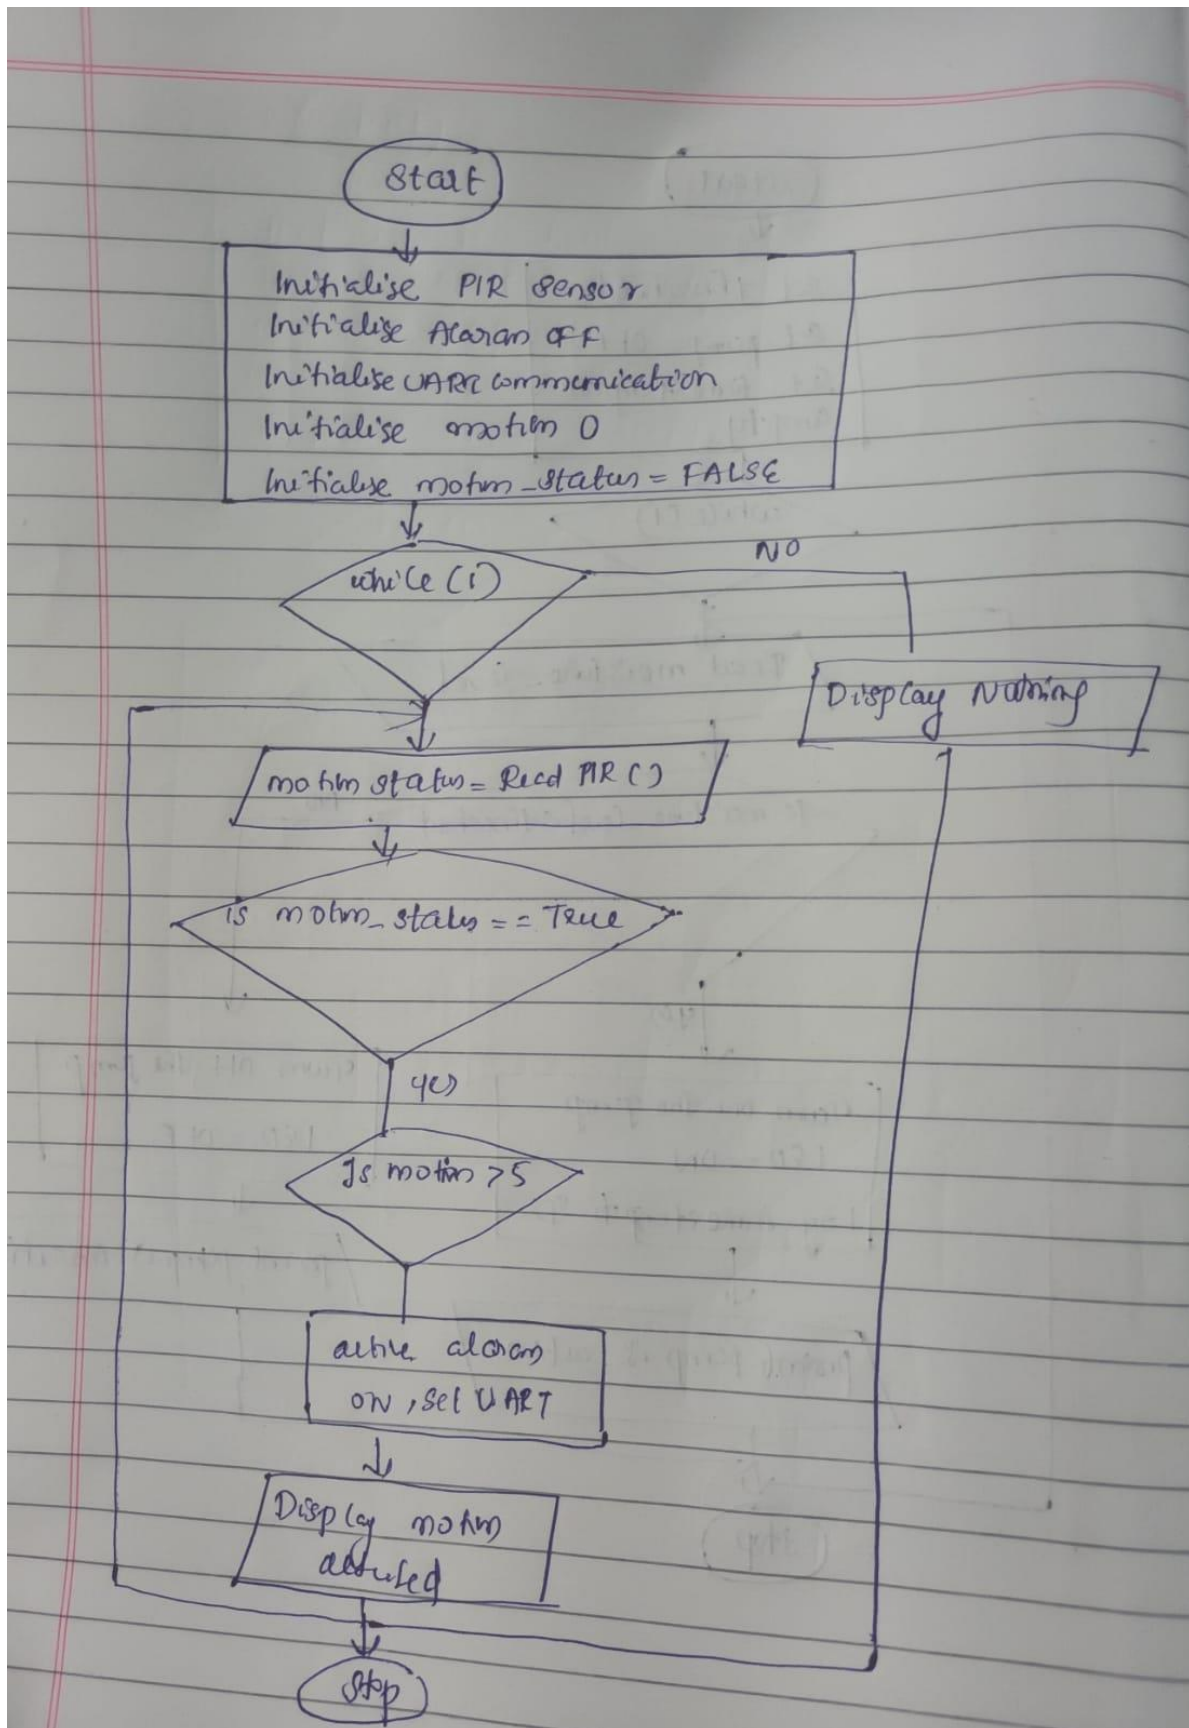 Start
Initialise PIR Sensor
Initialise Alaram OFF
Initialise UART Communication
Initialise motion 0
Initialise motion_status = FALSE
while (1)
NO
Display Nothing
motion status = Read PIR ( )
is motion_status == True
yes
Is motion >5
active alaram
ON, Set UART
Display motion
Stop